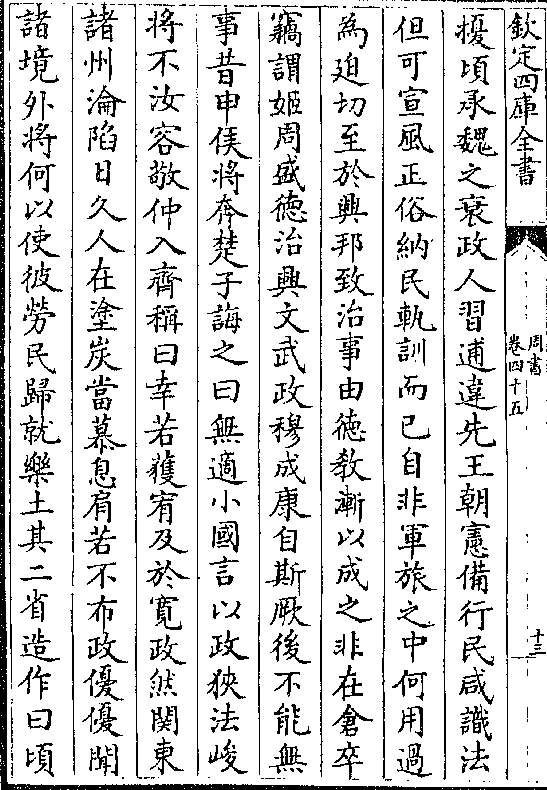 欽定四庫全書
周書
卷四十五
十三
擾頃承魏之衰政人習逋違先王朝憲備行民咸識法
但可宣風正俗納民軌訓而已自非軍旅之中何用過
為迫切至於興邦致治事由德教漸以成之非在倉卒
竊謂姬周盛德治興文武政穆成康自斯厥後不能無
事昔申侯將奔楚子誨之曰無適小國言以政狹法峻
將不汝容敬仲入齊稱曰幸若獲宥及於寛政然關東
諸州淪陷日久人在塗炭當慕息肩若不布政優優聞
諸境外將何以使彼勞民歸就樂土其二省造作曰頃